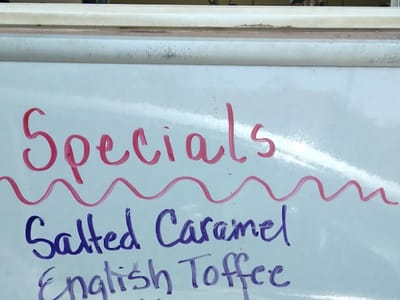 Specials
Salted Caramel
English Toffee